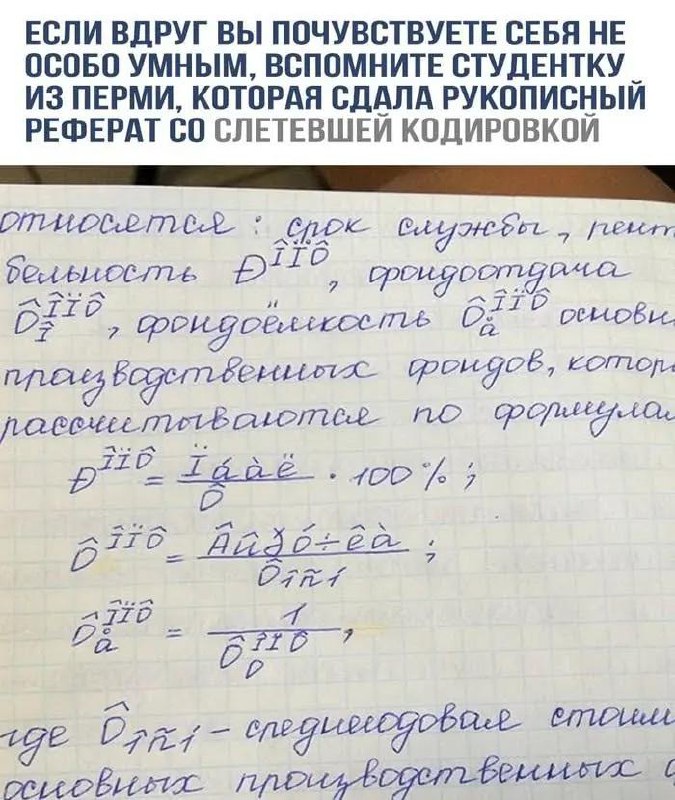 ЕСЛИ ВДРУГ ВЫ ПОЧУВСТВУЕТЕ СЕБЯ НЕ
ОСОБО УМНЫМ, ВСПОМНИТЕ СТУДЕНТКУ
ИЗ ПЕРМИ, КОТОРАЯ СДАЛА РУКОПИСНЫЙ
РЕФЕРАТ СО СЛЕТЕВШЕЙ КОДИРОВКОЙ
относятся: срок службы, рент
бельность Ð^ÎÏÔ, фондоотдача
Ô_Î^ÎÏÔ, фондоёмкость Ô_å^ÎÏÔ основн
производственных фондов, котор
рассчитываются по формулам
Ð^ÎÏÔ = Ïáàë / Ô · 100 %;
Ô^ÎÏÔ = Âûðó÷êà / Ôîñí;
Ô_å^ÎÏÔ = 1 / Ô_Ô^ÎÏÔ,
где Ôîñí - среднегодовая стоим
основных производственных ф